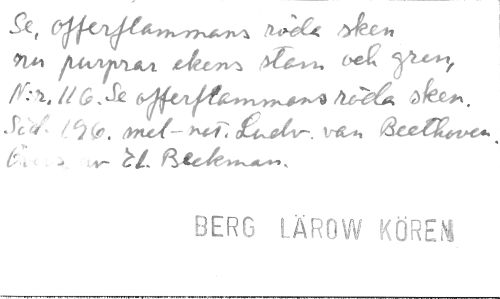 Se, offerflammans röda sken
nu purprar ekens stam och gren,
N:r. 116. Se offerflammans röda sken.
Sid. 196. mel-not. Ludv. van Beethoven.
av El. Beckman.
BERG LÄROW KÖREN